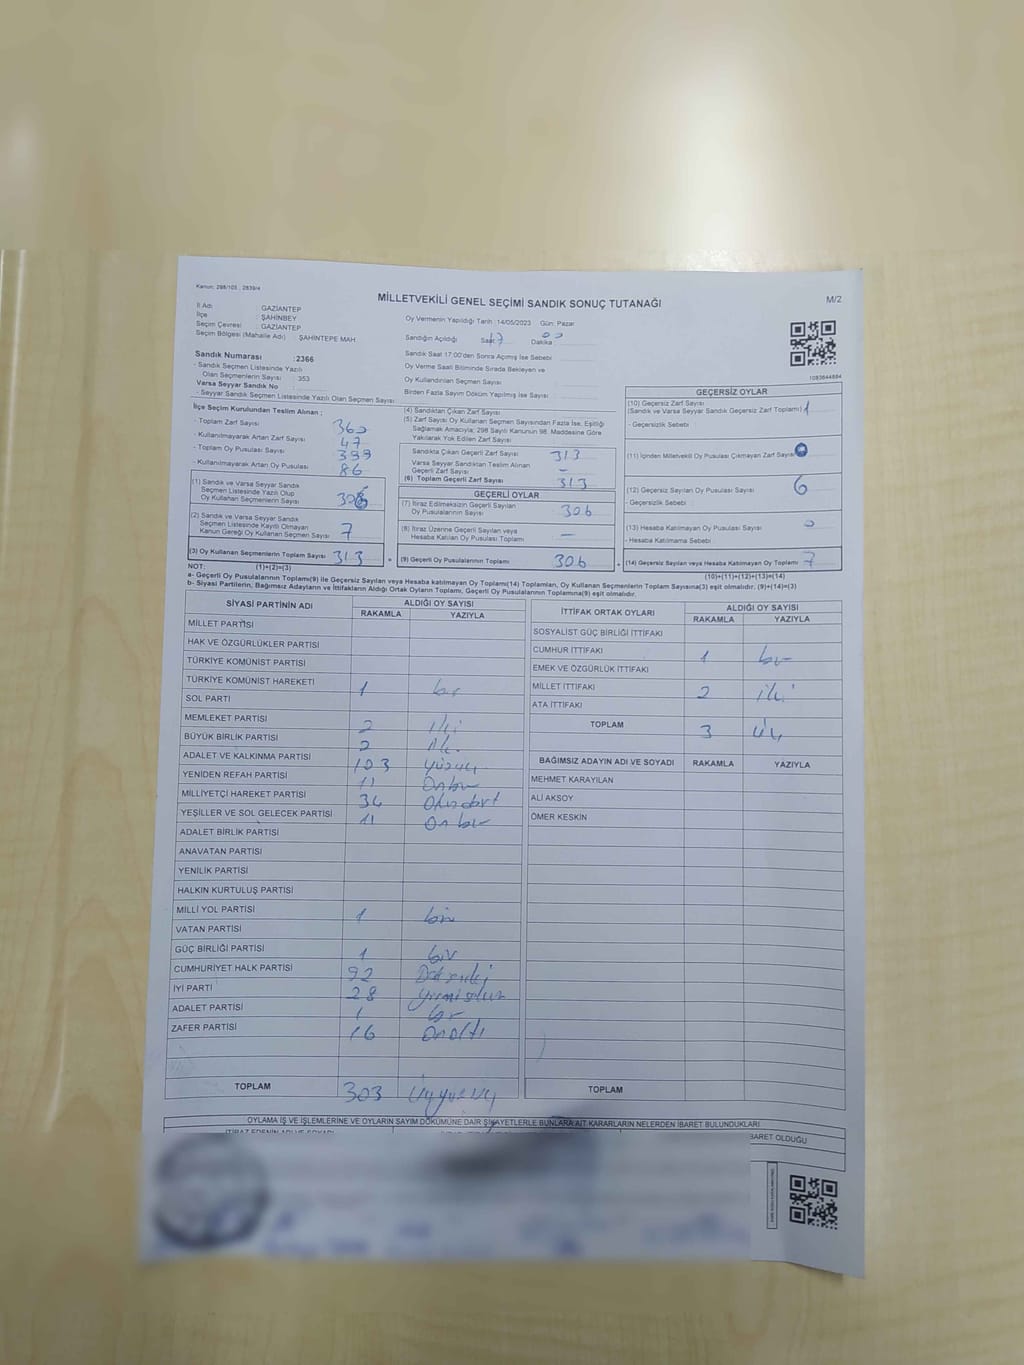 Kanun: 298/105 , 2839/4
MİLLETVEKİLİ GENEL SEÇİMİ SANDIK SONUÇ TUTANAĞI
M/2
İl Adı : GAZİANTEP
İlçe : ŞAHİNBEY
Seçim Çevresi : GAZİANTEP
Seçim Bölgesi (Mahalle Adı) : ŞAHİNTEPE MAH.
Sandık Numarası : 2366
- Sandık Seçmen Listesinde Yazılı
Olan Seçmenlerin Sayısı : 353
Varsa Seyyar Sandık No :
- Seyyar Sandık Seçmen Listesinde Yazılı Olan Seçmen Sayısı :
Oy Vermenin Yapıldığı Tarih :14/05/2023 Gün: Pazar
Sandığın Açıldığı Saat 17 Dakika 00
Sandık Saat 17:00'den Sonra Açılmış İse Sebebi :
Oy Verme Saati Bitiminde Sırada Bekleyen ve
Oy Kullandırılan Seçmen Sayısı :
Birden Fazla Sayım Döküm Yapılmış İse Sayısı :
1093644694
İlçe Seçim Kurulundan Teslim Alınan ;
- Toplam Zarf Sayısı : 360
- Kullanılmayarak Artan Zarf Sayısı : 47
- Toplam Oy Pusulası Sayısı : 399
- Kullanılmayarak Artan Oy Pusulası : 86
(1) Sandık ve Varsa Seyyar Sandık
Seçmen Listesinde Yazılı Olup
Oy Kullanan Seçmenlerin Sayısı : 306
(2) Sandık ve Varsa Seyyar Sandık
Seçmen Listesinde Kayıtlı Olmayan
Kanun Gereği Oy Kullanan Seçmen Sayısı : 7
(3) Oy Kullanan Seçmenlerin Toplam Sayısı : 313
(4) Sandıktan Çıkan Zarf Sayısı :
(5) Zarf Sayısı Oy Kullanan Seçmen Sayısından Fazla İse, Eşitliği
Sağlamak Amacıyla; 298 Sayılı Kanunun 98. Maddesine Göre
Yakılarak Yok Edilen Zarf Sayısı :
Sandıkta Çıkan Geçerli Zarf Sayısı : 313
Varsa Seyyar Sandıktan Teslim Alınan
Geçerli Zarf Sayısı : –
(6) Toplam Geçerli Zarf Sayısı : 313
GEÇERLİ OYLAR
(7) İtiraz Edilmeksizin Geçerli Sayılan
Oy Pusulalarının Sayısı : 306
(8) İtiraz Üzerine Geçerli Sayılan veya
Hesaba Katılan Oy Pusulası Toplamı : –
(9) Geçerli Oy Pusulalarının Toplamı : 306
GEÇERSİZ OYLAR
(10) Geçersiz Zarf Sayısı
(Sandık ve Varsa Seyyar Sandık Geçersiz Zarf Toplamı) : 1
- Geçersizlik Sebebi :
(11) İçinden Milletvekili Oy Pusulası Çıkmayan Zarf Sayısı :
(12) Geçersiz Sayılan Oy Pusulası Sayısı : 6
- Geçersizlik Sebebi :
(13) Hesaba Katılmayan Oy Pusulası Sayısı : 0
- Hesaba Katılmama Sebebi :
(14) Geçersiz Sayılan veya Hesaba Katılmayan Oy Toplamı : 7
NOT: (1)+(2)=(3) (10)+(11)+(12)+(13)=(14)
a- Geçerli Oy Pusulalarının Toplamı(9) ile Geçersiz Sayılan veya Hesaba katılmayan Oy Toplamı(14) Toplamları, Oy Kullanan Seçmenlerin Toplam Sayısına(3) eşit olmalıdır. (9)+(14)=(3)
b- Siyasi Partilerin, Bağımsız Adayların ve İttifakların Aldığı Ortak Oyların Toplamı, Geçerli Oy Pusulalarının Toplamına(9) eşit olmalıdır.
SİYASİ PARTİNİN ADI ALDIĞI OY SAYISI
RAKAMLA YAZIYLA
MİLLET PARTİSİ
HAK VE ÖZGÜRLÜKLER PARTİSİ
TÜRKİYE KOMÜNİST PARTİSİ
TÜRKİYE KOMÜNİST HAREKETİ 1 bir
SOL PARTİ
MEMLEKET PARTİSİ 2 iki
BÜYÜK BİRLİK PARTİSİ 2 iki
ADALET VE KALKINMA PARTİSİ 103 yüzüç
YENİDEN REFAH PARTİSİ 11 Onbir
MİLLİYETÇİ HAREKET PARTİSİ 34 Otuzdört
YEŞİLLER VE SOL GELECEK PARTİSİ 11 Onbir
ADALET BİRLİK PARTİSİ
ANAVATAN PARTİSİ
YENİLİK PARTİSİ
HALKIN KURTULUŞ PARTİSİ
MİLLİ YOL PARTİSİ 1 bir
VATAN PARTİSİ
GÜÇ BİRLİĞİ PARTİSİ 1 bir
CUMHURİYET HALK PARTİSİ 92 Doksaniki
İYİ PARTİ 28 yirmisekiz
ADALET PARTİSİ 1 bir
ZAFER PARTİSİ 16 Onaltı
TOPLAM 303 Üçyüzüç
İTTİFAK ORTAK OYLARI ALDIĞI OY SAYISI
RAKAMLA YAZIYLA
SOSYALİST GÜÇ BİRLİĞİ İTTİFAKI
CUMHUR İTTİFAKI 1 bir
EMEK VE ÖZGÜRLÜK İTTİFAKI
MİLLET İTTİFAKI 2 iki
ATA İTTİFAKI
TOPLAM 3 üç
BAĞIMSIZ ADAYIN ADI VE SOYADI RAKAMLA YAZIYLA
MEHMET KARAYILAN
ALİ AKSOY
ÖMER KESKİN
TOPLAM
OYLAMA İŞ VE İŞLEMLERİNE VE OYLARIN SAYIM DÖKÜMÜNE DAİR ŞİKAYETLERLE BUNLARA AİT KARARLARIN NELERDEN İBARET BULUNDUKLARI
İTİRAZ EDENİN ADI VE SOYADI
BARET OLDUĞU